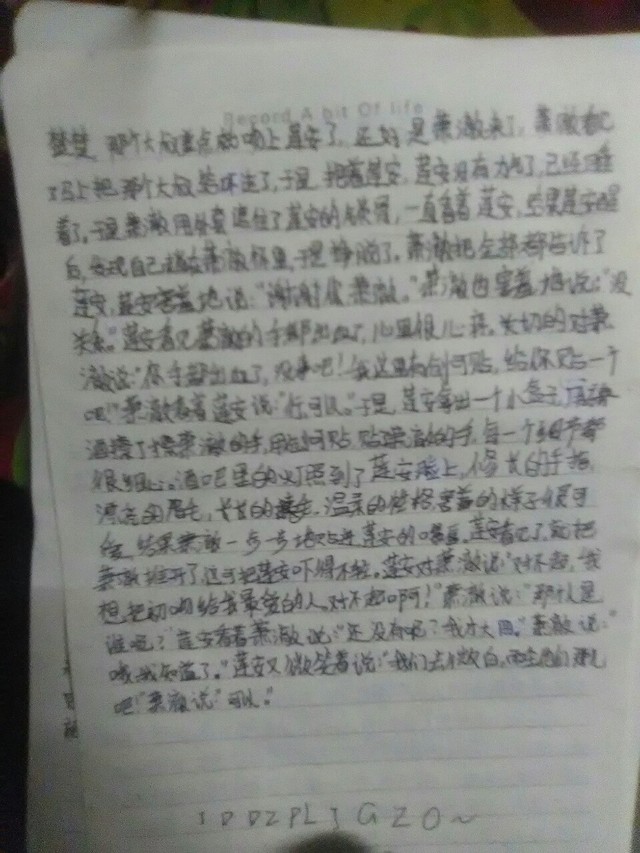 Record A bit Of life
楚楚,那个大叔差点就吻上莲安了,还好是萧澈来了,萧澈看见
了马上把那个大叔给环住了,于是,抱着莲安,莲安没有力气了,已经睡
着了,于是萧澈用外套遮住了莲安的,一直看着莲安,结果莲安醒
后,发现自己在萧澈怀里,于是挣脱了。萧澈把全部都告诉了
莲安,莲安害羞地说:“谢谢你萧澈。”萧澈也害羞地说:“没
关系。”莲安看见萧澈的手都出血了,心里很心疼,关切的对萧
澈说:“你手都出血了,没事吧!我这里有创可贴,给你贴一个
吧!”萧澈看着莲安说:“行可以。”于是,莲安拿出一个小盒子,用
酒擦了擦萧澈的手,用创可贴贴萧澈的手,每一个细节都
很细心。酒吧里的灯照到了莲安脸上,修长的手指,
漂亮的眉毛,长长的,温柔的性格,害羞的样子很可
爱,结果萧澈一步一步地贴近莲安的嘴唇,莲安看见了,就把
萧澈推开了,这可把莲安吓得不轻。莲安对萧澈说:“对不起,我
想把初吻给我最爱的人,对不起啊!”萧澈说:“那个人是
谁呢?”莲安看着萧澈说:“还没有呢?我才大四。”萧澈说:“
哦,我知道了。”莲安又微笑着说:“我们去找微白,雨生他们那儿
吧!”萧澈说:“可以。”